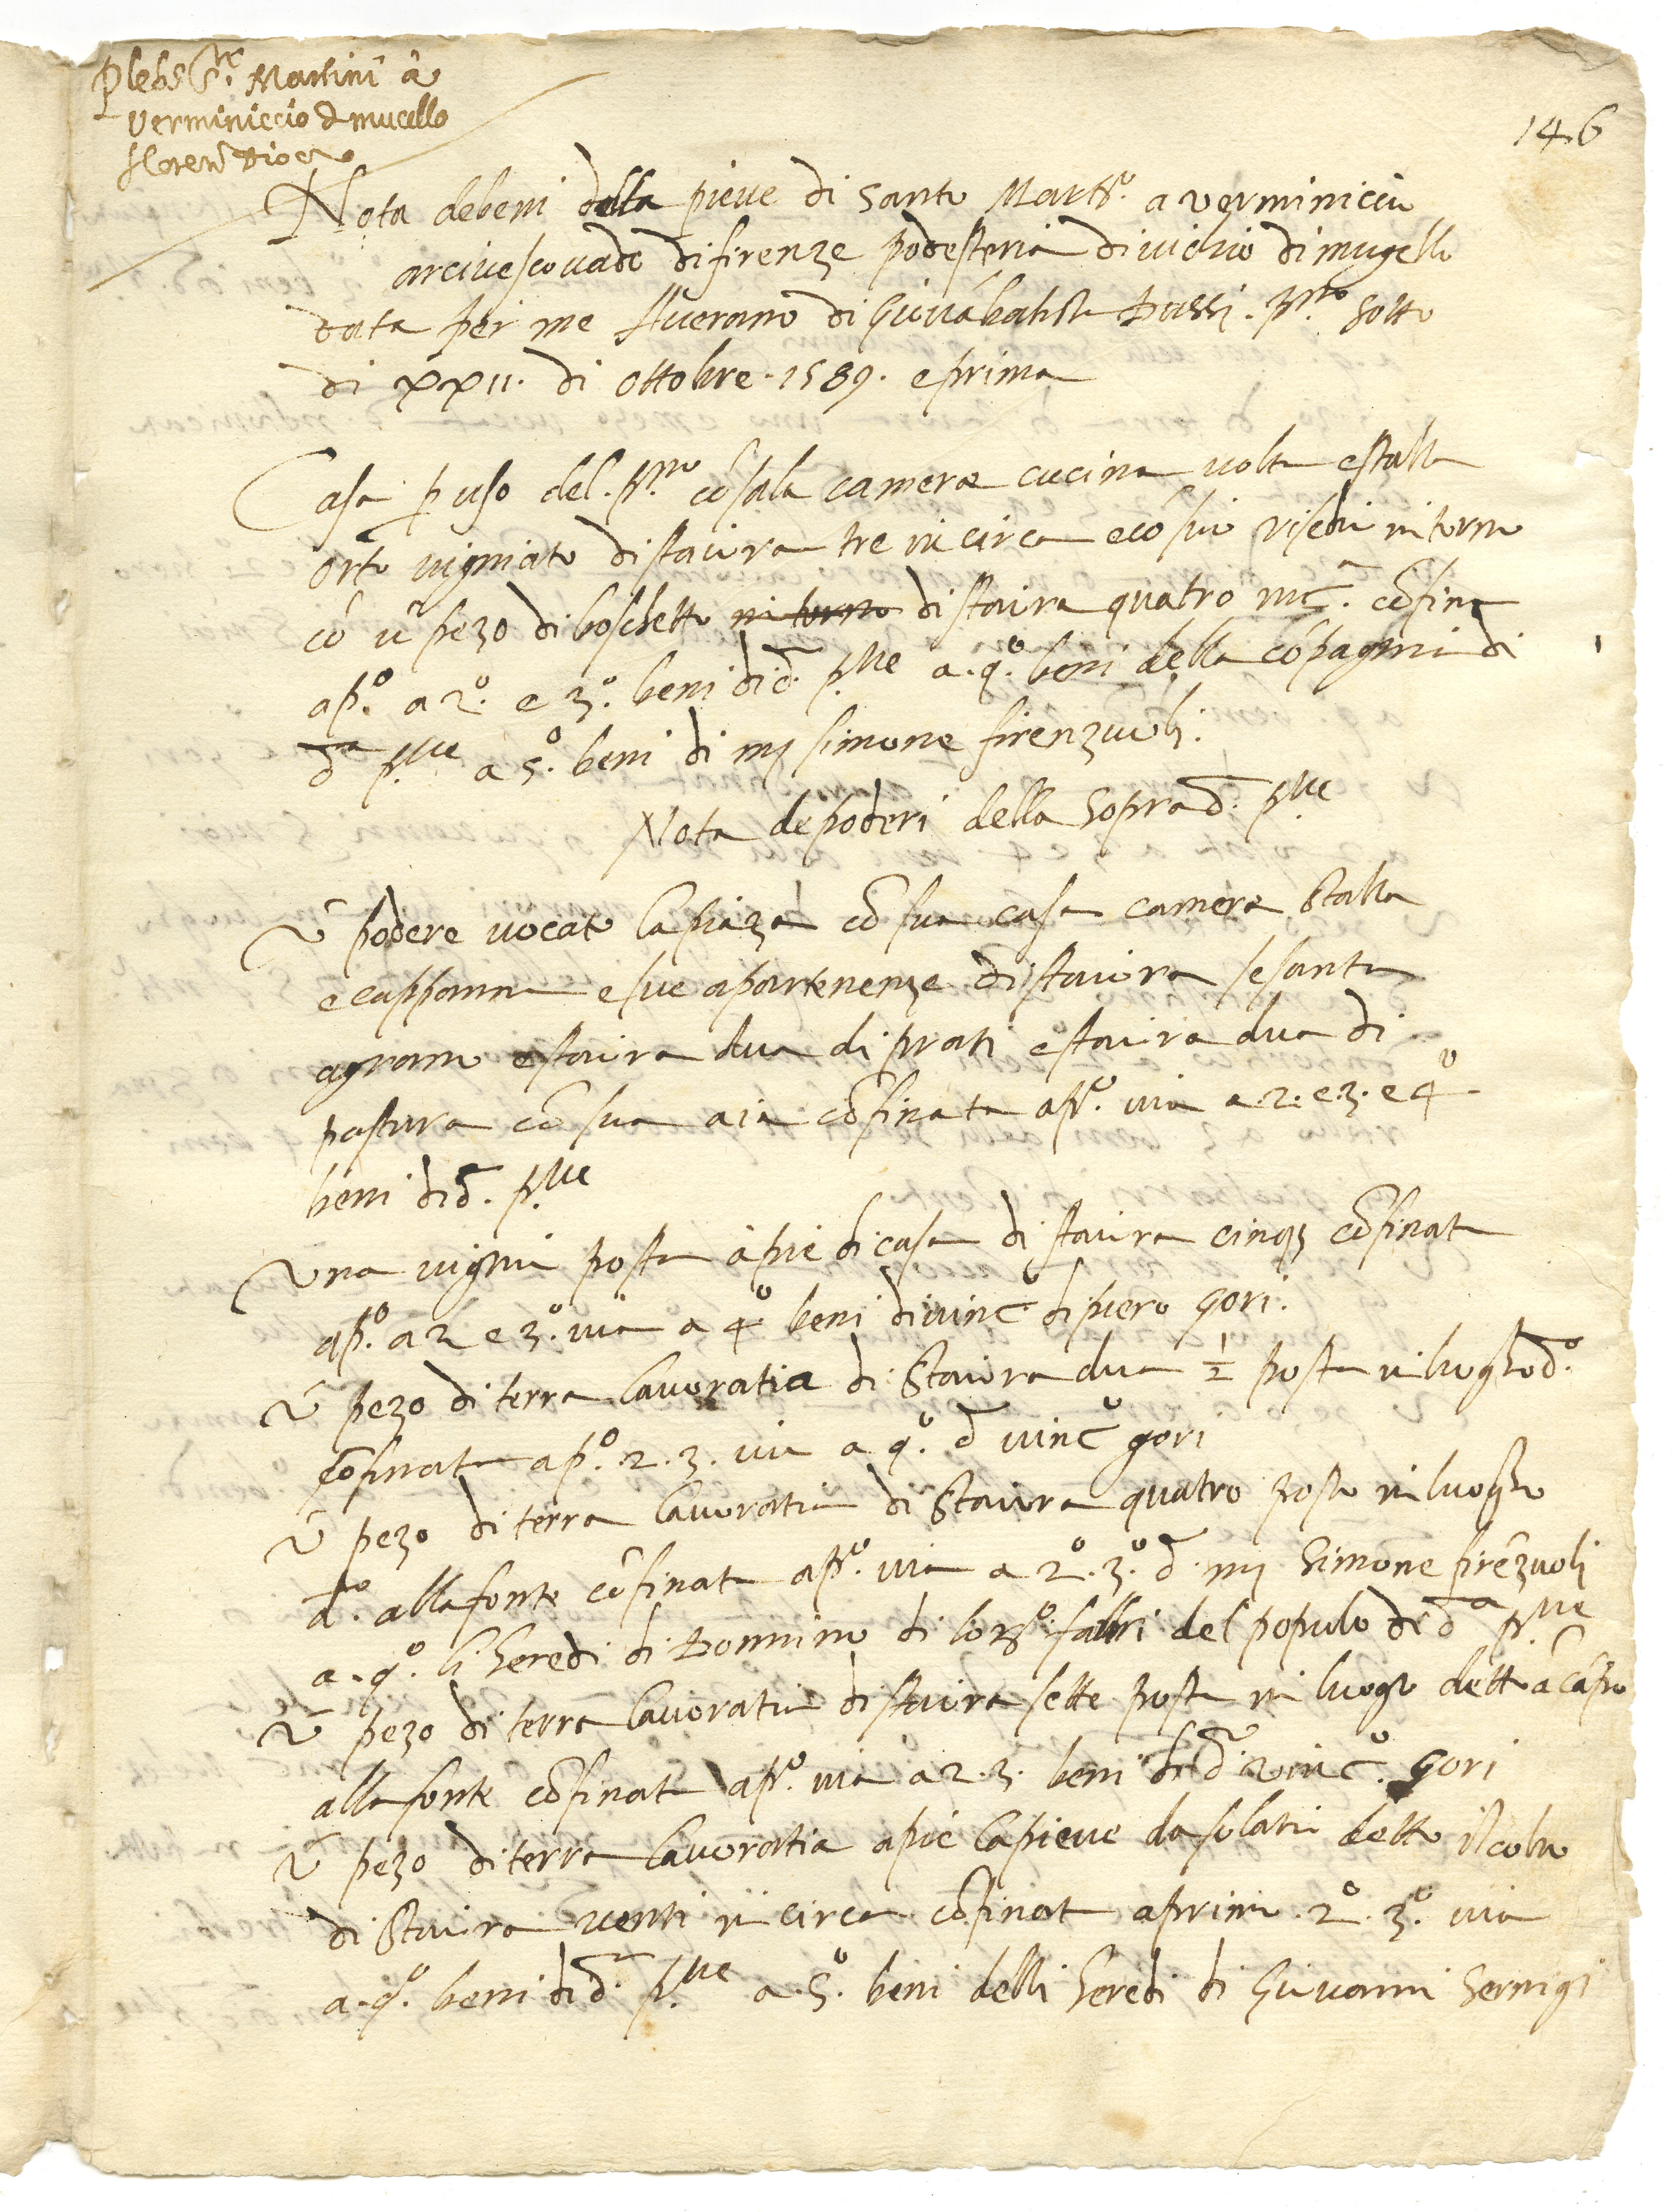 Plebs S.ti Martini a
verminiccio d mucello
floren dioc
146
Nota debeni della pieve di Santo Mart.o a verminiccio
arcivescovado di firenze podesteria di vichio di mugello
data per me Averano di Giovābatista piov.no sotto
di xxii. di ottobre. 1589. e prima
Casa p uso del. p.no cō sala camera cucina volta e stalla
orto vigniato di staiora tre in circa e cō sui resedi intorno
cō ū pezo di boschetto intorno di staiora quatro in c. cōfina
a p.o a 2.o e 3.o beni di d. p.ve a. q.o beni della cōpagnia di
d.a p.ve a 5.o beni di mj simone firenzuoli.
Nota de poderi della soprad. p.ve
ū podere vocato la piaza cō sua casa camera stalla
e cappanna e sue apartenenze di staiora sesanta
a grano e staiora dua di prati e staiora dua di
pastura cō sua aia cōfinata a p.o via a 2. e 3. e 4.o
beni di d. p.ve
una vignia posta a pie di casa di staiora cinq3 cōfinata
a p.o a 2 e 3.o via a 4.o beni di vinc.o di piero gori.
ū pezo di terra lavoratia di staiora dua ½ posta in luogho d.o
cōfinata a p.o 2. 3. via a q.o d vinc.o gori
ū pezo di terra lavoratia di staiora quatro posto in luogho
d.o alla fonte cōfinata a p.o via a 2.o 3.o d mj Simone firēzuoli
a. q.o li heredi di Domnino di lor.o fabri del popolo di d.a p.ve
ū pezo di terra lavoratia di staiora sette posta in luogo detto a cāpo
alla fonte cōfinata a p.o via a 2. 3. beni di d. vinc.o gori
ū pezo di terra lavoratia a pie la pieve da solatio detto il colto
di staiora venti in circa cōfinata a primo. 2.o 3.o via
a. q.o beni di d. p.ve a 5.o beni delli heredi di Giovanni Sernigi